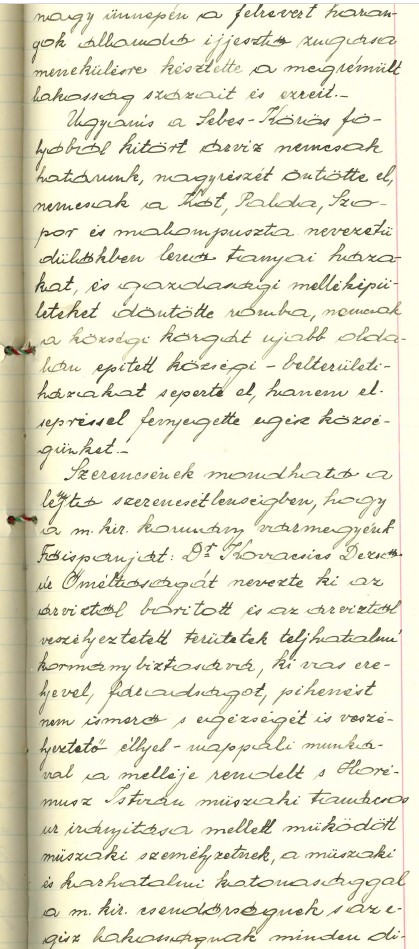 nagy ünnepén a félrevert haran-
gok állandó ijjesztő zugása
menekülésre késztette a megrémült
lakosság százait és ezreit.-
Ugyanis a Sebes-Körös fo-
lyóból kitört árviz nemcsak
határunk, nagyrészét öntötte el,
nemcsak a Kót, Palida, Szo-
por és malompuszta nevezetü
dülőkben levő tanyai háza-
kat, és gazdasági melléképü-
leteket döntötte romba, nemcsak
a községi körgát ujabb olda-
lán épitett községi - belterületi-
házakat seperte el, hanem el-
sepréssel fenyegette egész közsé-
günket.-
Szerencsének mondható a
léjtő szerencsétlenségben, hogy
a m. kir. kormány vármegyénk
Főispánját: Dr Kovacsics Dezső
úr Őméltóságát nevezte ki az
árviztől boritott és az árviztől
veszélyeztetett területek teljhatalmú
kormánybiztosává, ki vas ere-
jével, fáradságot, pihenést
nem ismerő s egézségét is veszé-
lyeztető éllyel-nappali munká-
val a melléje rendelt s Horé-
musz István müszaki tanácsos
ur irányitása mellett müködött
müszaki személyzetnek, a müszaki
és karhatalmi katonasággal
a m. kir. csendőrségnek s az e-
gész lakosságnak minden di-